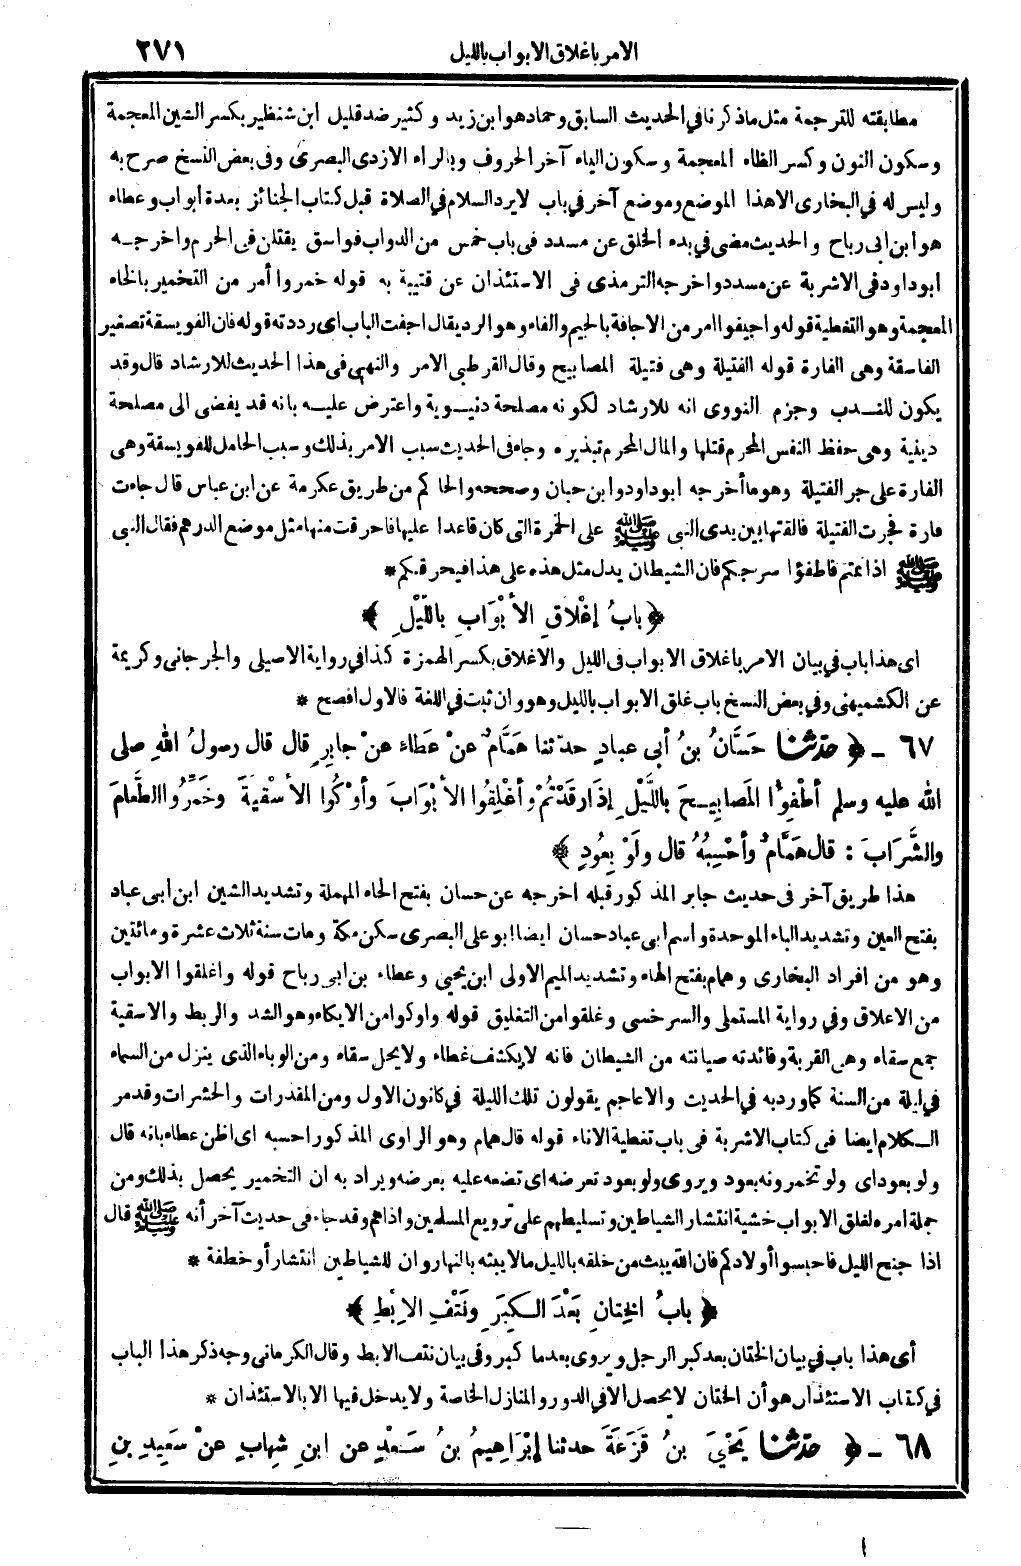 الامر باغلاق الابواب بالليل ٢٧١
مطابقته للترجمة مثل ما ذكرنا في الحديث السابق وحماد هو ابن زيد وكثير ضد قليل ابن شنظير بكسر الشين المعجمة
وسكون النون وكسر الظاء المعجمة وسكون الياء آخر الحروف وبالراء الازدى البصرى وفى بعض النسخ صرح به
وليس له في البخارى الا هذا الموضع وموضع آخر في باب لا يرد السلام في الصلاة قبل كتاب الجنائز بعدة ابواب وعطاء
هو ابن ابى رباح والحديث مضى في بدء الخلق عن مسدد فى باب خمس من الدواب فواسق يقتلن فى الحرم واخرجه
ابو داود فى الاشربة عن مسدد واخرجه الترمذى فى الاستئذان عن قتيبة به قوله خمروا أمر من التخمير بالخاء
المعجمة وهو التغطية قوله واجيفوا امر من الاجافة بالجيم والفاء وهو الرد يقال اجفت الباب اى رددته قوله فان الفويسقة تصغير
الفاسقة وهى الفارة قوله الفتيلة وهى فتيلة المصابيح وقال القرطبى الامر والنهى فى هذا الحديث للارشاد قال وقد
يكون للندب وجزم النووى انه للارشاد لكونه مصلحة دنيوية واعترض عليه بانه قد يفضى الى مصلحة
دينية وهى حفظ النفس المحرم قتلها والمال المحرم تبذيره وجاء فى الحديث سبب الامر بذلك وسبب الحامل للفويسقة وهى
الفارة على جر الفتيلة وهو ما أخرجه ابو داود وابن حبان وصححه والحاكم من طريق عكرمة عن ابن عباس قال جاءت
فارة فجرت الفتيلة فالقتها بين يدى النبى ﷺ على الخمرة التى كان قاعدا عليها فاحرقت منها مثل موضع الدرهم فقال النبى
ﷺ اذا نمتم فاطفؤا سرجكم فان الشيطان يدل مثل هذه على هذا فيحرقكم *
﴿ بابُ إغْلاقِ الأبْوابِ باللَّيْلِ ﴾
اى هذا باب فى بيان الامر باغلاق الابواب فى الليل والاغلاق بكسر الهمزة كذا في رواية الاصيلى والجرجانى وكريمة
عن الكشميهنى وفي بعض النسخ باب غلق الابواب بالليل وهو وان ثبت في اللغة فالاول افصح *
٦٧ - ﴿ حدّثنا حَسَّانُ بنُ أبى عبادٍ حدثنا هَمَّامٌ عنْ عَطاءَ عنْ جابِرٍ قال قال رسولُ اللهِ صلى
الله عليه وسلم أطْفِؤُا المَصابِيحَ باللَّيْلِ إذَا رقَدْتُمْ وأغْلِقُوا الأبْوَابَ وأوْكُوا الأسْقِيَةَ وخَمِّرُوا الطَّعامَ
والشَّرَابَ : قال هَمَّامٌ وأحْسِبُهُ قال ولَوْ بِعُودٍ * ﴾
هذا طريق آخر فى حديث جابر المذكور قبله اخرجه عن حسان بفتح الحاء المهملة وتشديد الشين ابن ابى عباد
بفتح العين وتشديد الباء الموحدة واسم ابى عباد حسان ايضا ابو على البصرى سكن مكة ومات سنة ثلاث عشرة ومائتين
وهو من افراد البخارى وهمام بفتح الهاء وتشديد الميم الاولى ابن يحيى وعطاء بن ابى رباح قوله واغلقوا الابواب
من الاغلاق وفي رواية المستملى والسرخسى وغلقوا من التغليق قوله واوكوا من الايكاء وهو الشد والربط والاسقية
جمع سقاء وهى القربة وفائدته صيانته من الشيطان فانه لا يكشف غطاء ولا يحل سقاء ومن الوباء الذى ينزل من السماء
في ليلة من السنة كما ورد به في الحديث والاعاجم يقولون تلك الليلة في كانون الاول ومن المقذرات والحشرات وقد مر
الكلام ايضا فى كتاب الاشربة فى باب تغطية الاناء قوله قال همام وهو الراوى المذكور احسبه اى اظن عطاء بانه قال
ولو بعود اى ولو تخمرونه بعود ويروى ولو بعود تعرضه اى تضعه عليه بعرضه ويراد به ان التخمير يحصل بذلك ومن
جملة امره لغلق الابواب خشية انتشار الشياطين وتسليطهم على ترويع المسلمين واذاهم وقد جاء فى حديث آخر أنه ﷺ قال
اذا جنح الليل فاحبسوا أولادكم فان الله يبث من خلقه بالليل ما لا يبثه بالنهار وان للشياطين انتشارا وخطفة *
﴿ بابُ الخِتانِ بَعْدَ الكِبَرِ ونَتْفِ الإبْطِ ﴾
أى هذا باب في بيان الختان بعد كبر الرجل ويروى بعد ما كبر وفى بيان نتف الابط وقال الكرمانى وجه ذكر هذا الباب
في كتاب الاستئذان هو أن الختان لا يحصل الا فى الدور والمنازل الخاصة ولا يدخل فيها الا بالاستئذان *
٦٨ - ﴿ حدّثنا يَحْيَى بنُ قَزَعَةَ حدثنا إبْرَاهِيمُ بنُ سَعْدٍ عن ابنِ شِهابٍ عنْ سَعِيدِ بنِ